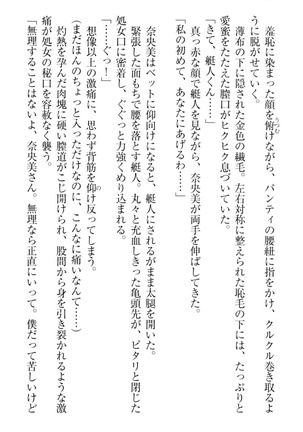 羞恥に染まった顔を俯がせながら、パンティの腰紐に指をかけ、クルクル巻き取るように脱がせていく。
薄布の下に隠された金色の繊毛。左右対称に整えられた恥毛の下には、たっぷりと愛蜜をたたえた膣口がヒクヒク息づいていた。
「きて、艇人くん……」
真っ赤な顔で艇人を見ながら、奈央美が両手を伸ばす。
「私の初めて、あなたにあげるわ……」
奈央美はベットに仰向けになると、艇人にされるがまま太腿を開いた。
緊張した面もちで腰を落とす艇人。丸々と充血しきった亀頭先が、ピタリと閉じた処女口に密着し、ぐぐっと力強くめり込まれる。
「……ぐっ！」
想像以上の激痛に、思わず背筋を仰け反ってしまう。
（まだほんのちょっと入っただけなのに、こんなに痛いなんて……）
灼熱を孕んだ肉塊に硬い膣道がこじ開けられ、股間から身を引き裂かれるような激痛が処女の秘口を容赦なく襲う。
「無理することはないよ、奈央美さん。無理なら正直にいって。僕だって苦しいけど